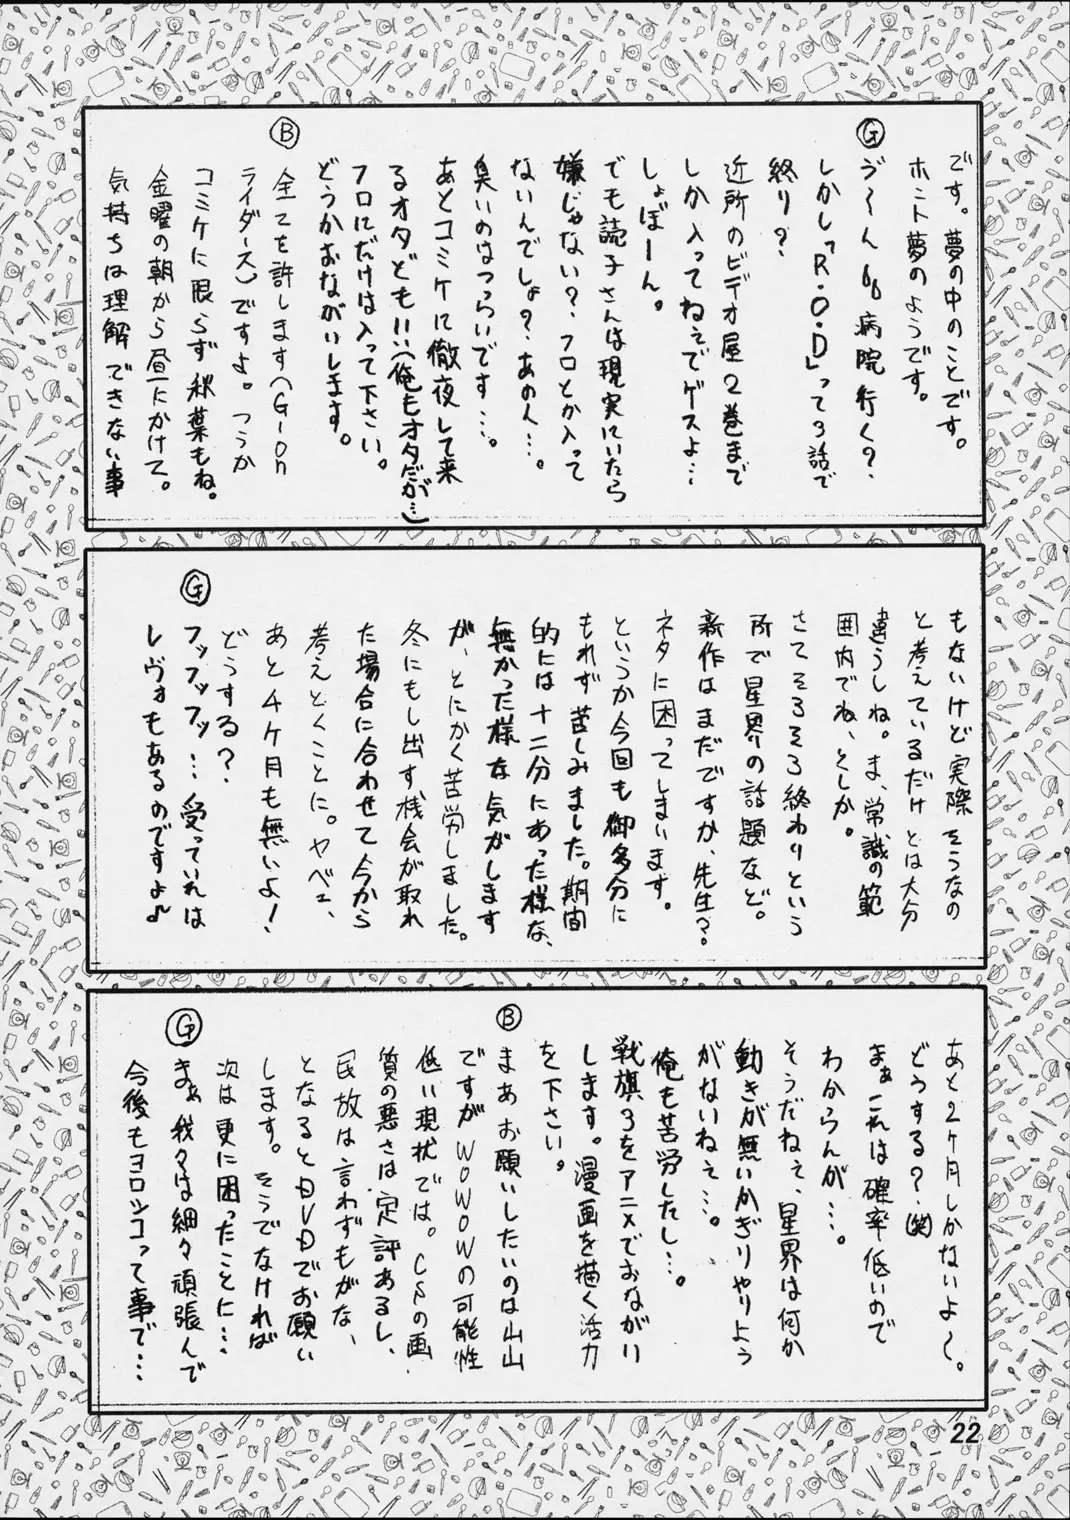 です。夢の中のことです。
ホント夢のようです。
Ⓖ
う〜ん 病院行く?
しかし「R・O・D」って3話で
終り?
近所のビデオ屋2巻まで
しか入ってねぇでゲスよ…
しょぼーん。
でも読子さんは現実にいたら
嫌じゃない?フロとか入って
ないんでしょ?あの人…。
臭いのはつらいです…。
あとコミケに徹夜して来
るオタども!!(俺もオタだが…)
フロにだけは入って下さい。
どうかおながいします。
Ⓑ
全てを許します(G-on
ライダース)ですよ。つうか
コミケに限らず秋葉もね。
金曜の朝から昼にかけて。
気持ちは理解できない事
もないけど実際そうなの
と考えているだけとは大分
違うしね。ま、常識の範
囲内でね、としか。
さてそろそろ終わりという
所で星界の話題など。
新作はまだですか、先生?
ネタに困ってしまいます。
というか今回も御多分に
もれず苦しみました。期間
的には十二分にあった様な、
無かった様な気がします
が、とにかく苦労しました。
冬にもし出す機会が取れ
た場合に合わせて今から
考えとくことに。ヤベェ、
あと4ケ月も無いよ!
どうする?
Ⓖ
フッフッフッ…受っていれば
レヴォもあるのですよ♪
あと2ヶ月しかないよ〜。
どうする?(笑)
まぁこれは確率低いので
わからんが…。
そうだねぇ、星界は何か
動きが無いかぎりやりよう
がないねぇ…。
俺も苦労したし…。
戦旗3をアニメでおながい
します。漫画を描く活力
を下さい。
Ⓑ
まあお願いしたいのは山山
ですがWOWOWの可能性
低い現状では。CSの画
質の悪さは定評あるし、
民放は言わずもがな、
となるとDVDでお願い
します。そうでなければ
次は更に困ったことに…
Ⓖ
まぁ我々は細々頑張んで
今後もヨロシコって事で…
22